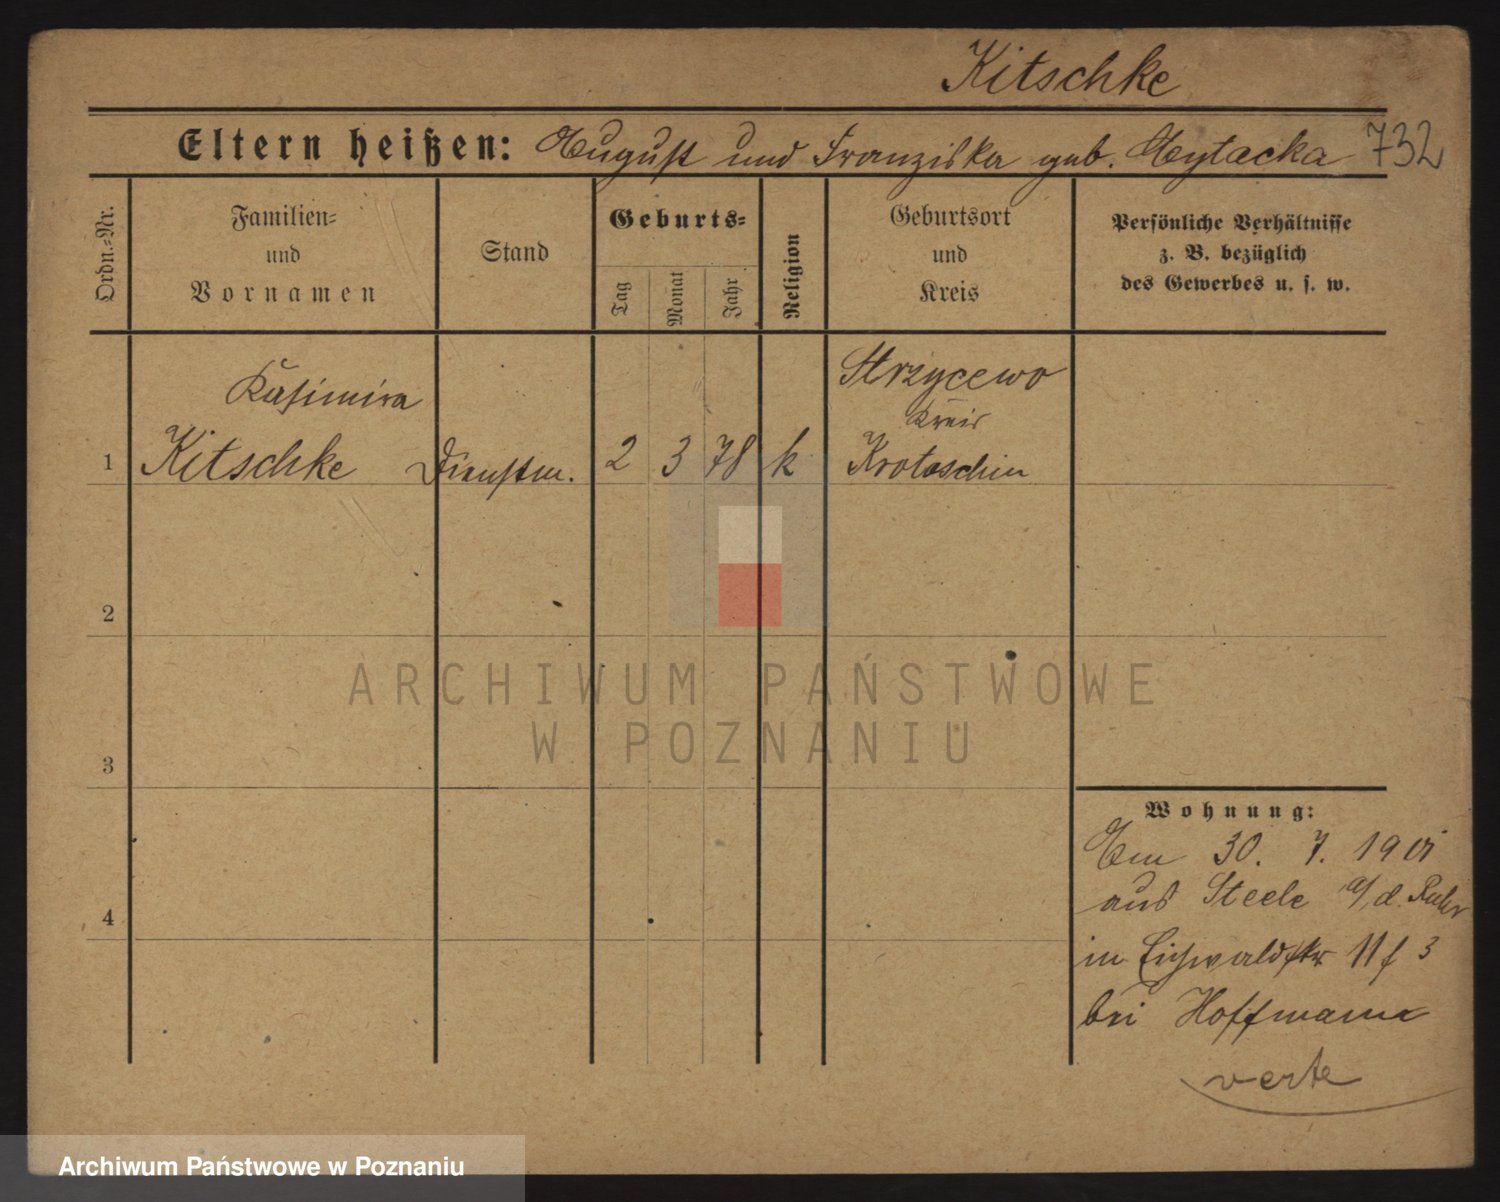 Kitschke
Eltern heißen: August und Franziska geb. Heytacka 732
Ordn.=Nr.
Familien=
und
Vornamen
Stand
Geburts=
Tag
Monat
Jahr
Religion
Geburtsort
und
Kreis
Persönliche Verhältnisse
z. B. bezüglich
des Gewerbes u. s. w.
Kasimira
Strzycewo
Kreis
1 Kitschke Dienstm. 2 3 78 k Krotoschin
2
ARCHIWUM PAŃSTWOWE
W POZNANIU
3
4
Wohnung:
30. 7. 1901
aus Steele a/d. Ruhr
in Eichwaldstr 11 f 3
bei Hoffmann
verte
Archiwum Państwowe w Poznaniu